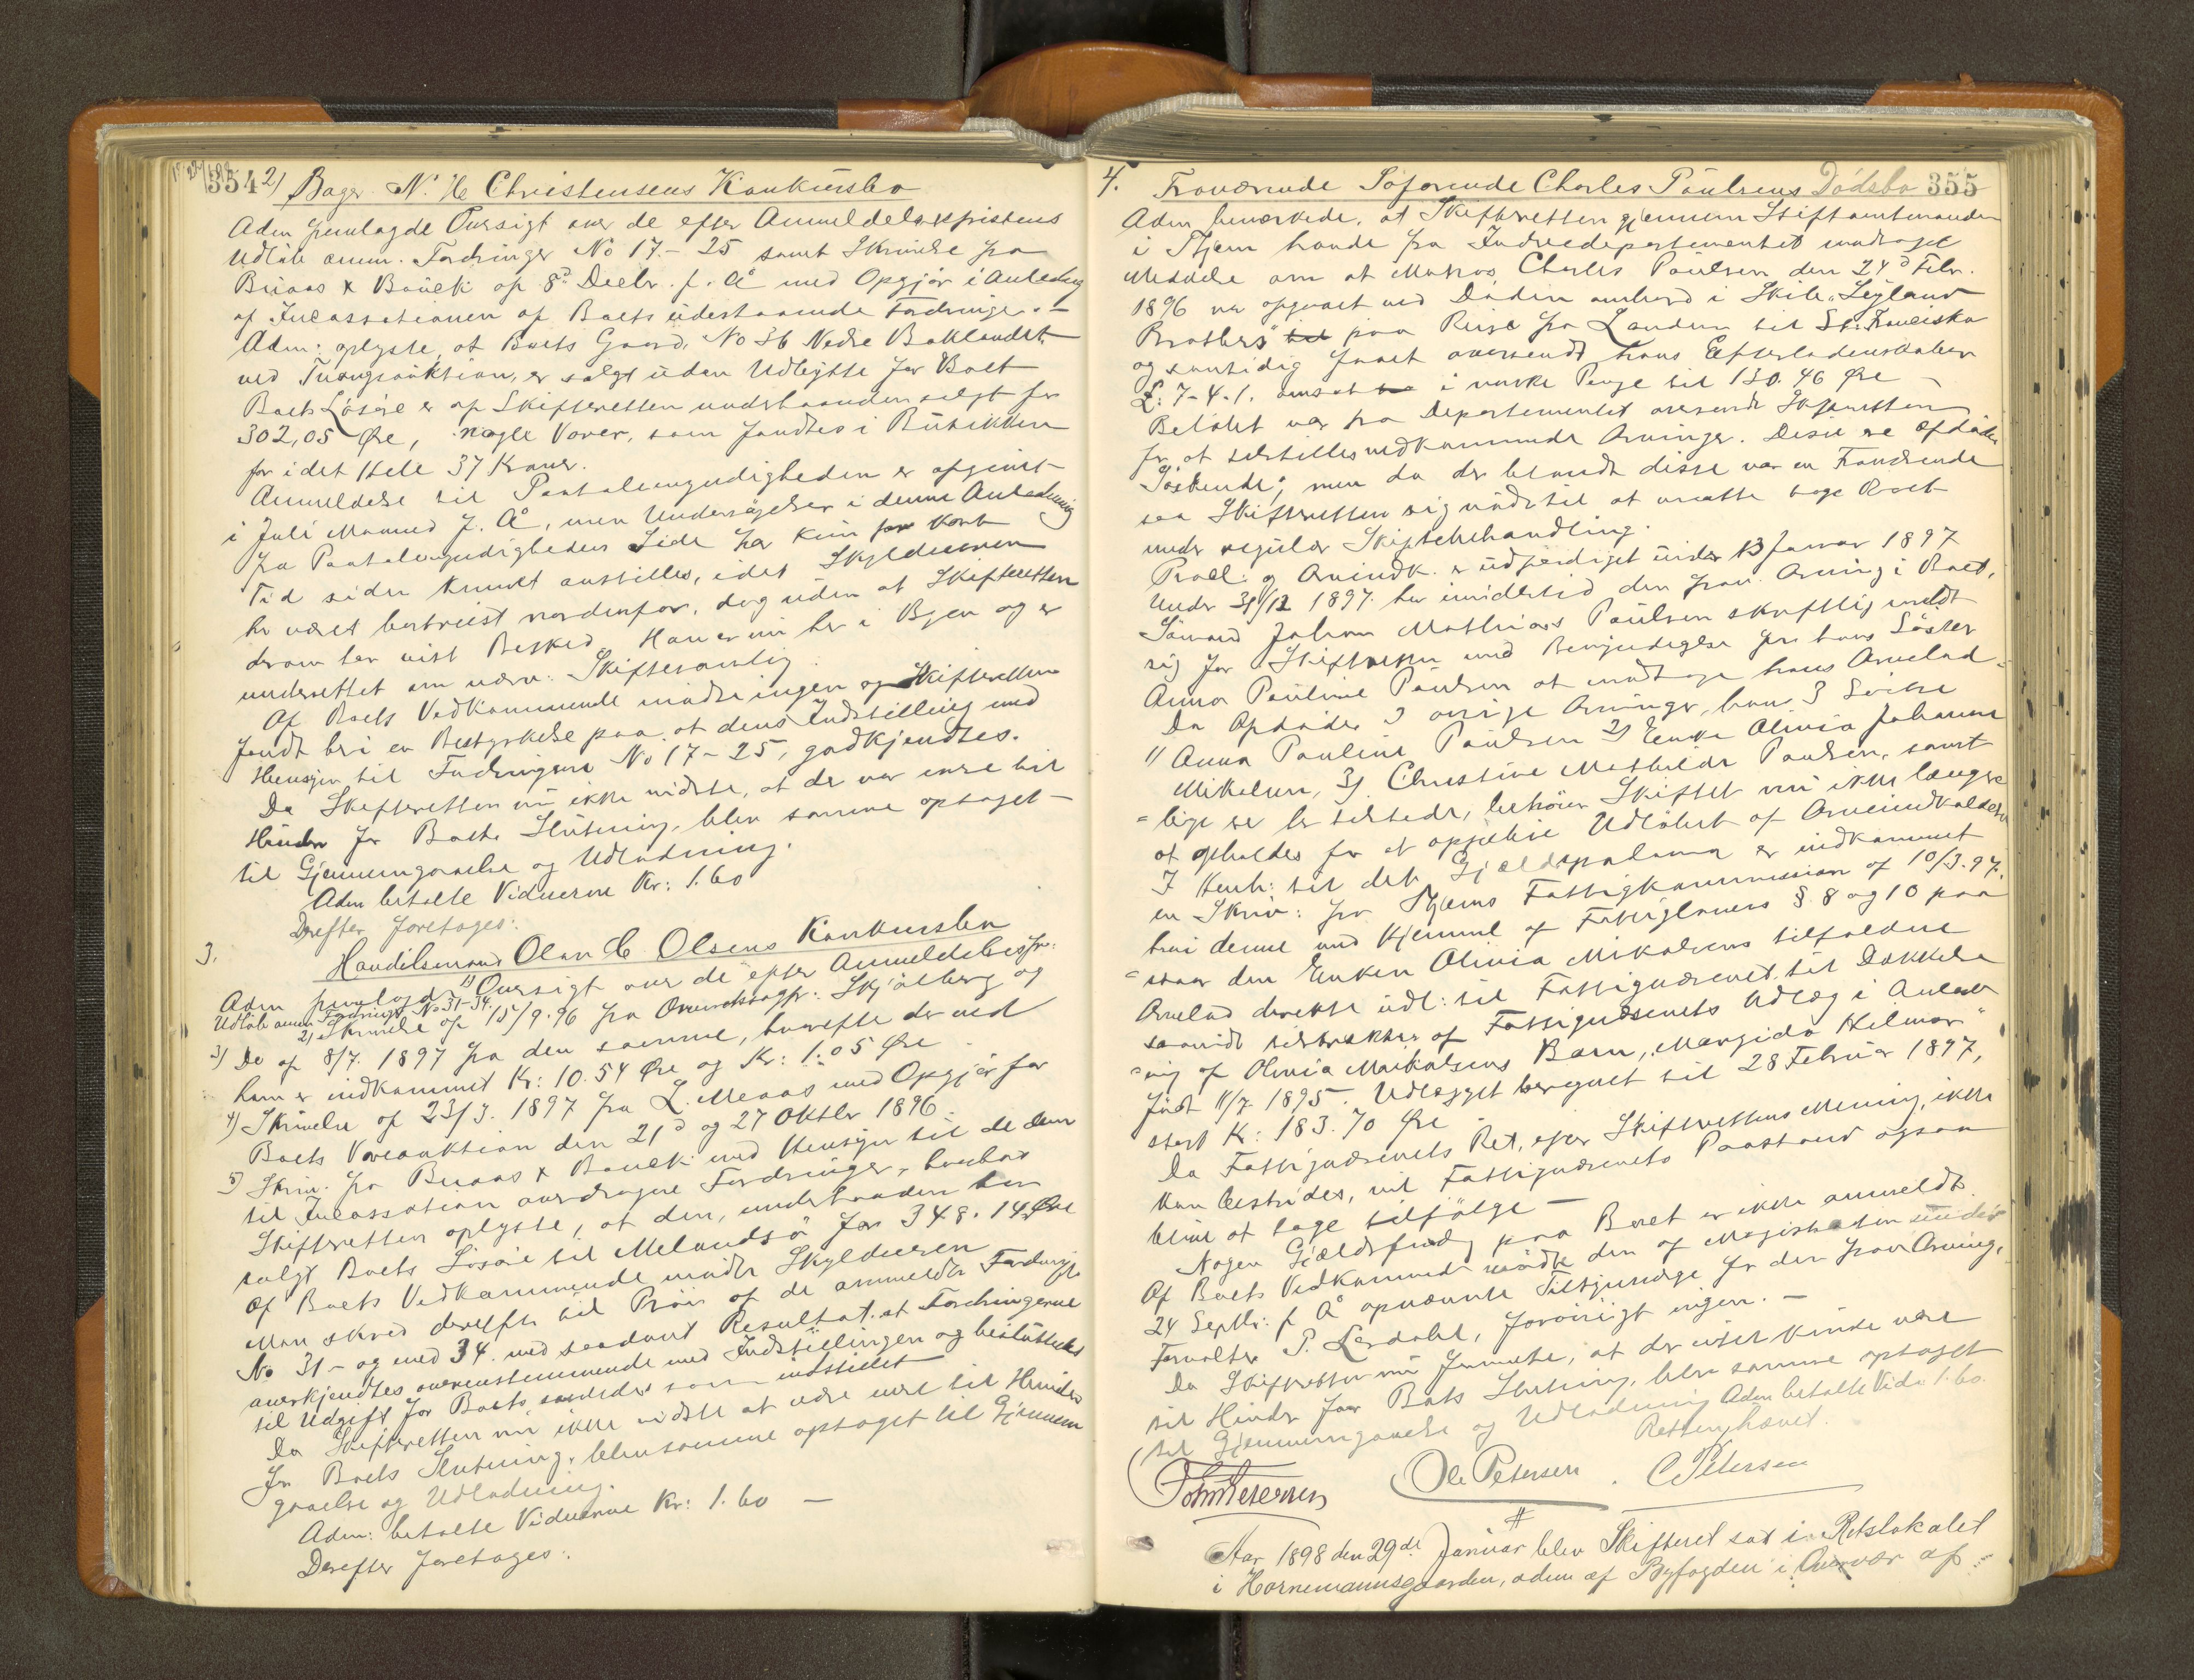 354
2) Bager N. H. Christensens Konkursbo
Adm fremlagde Oversigt over de efter Anmeldelsesfristens
Udløb anm. Fordringer No 17 - 25 samt Skrivelse fra
Buaas & Bauck af 8d Decbr. f. Å med Opgjør i Anledning
af Incassationen af Boets udestaaende Fordringer. -
Adm: oplyste, at Boets Gaard, No 36 Nedre Baklandet
ved Tvangsauktion, er solgt uden Udbytte for Boet
Boets Løsøre er af Skifteretten underhaanden solgt for
302,05 Øre, nogle Varer, som fandtes i Butikken
for i det Hele 37 Kroner.
Anmeldelse til Paatalemyndigheden er afgivet
i Juli Maaned f. Å, men Undersøgelser i denne Anledning
fra Paatalemyndighedens Side har kun for kort
Tid siden kunnet anstilles, idet Skyldneren
har været bortreist nordenfor, dog uden at Skifteretten
derom har vidst Besked. Han er nu her i Byen og er
underrettet om nærv. Skiftesamling.
Af Boets Vedkommende mødte ingen og Skifteretten
fandt heri en Bestyrkelse paa, at dens Indstilling med
Hensyn til Fordringerne No 17 - 25, godkjendtes.
Da Skifteretten nu ikke vidste, at der var mere til
Hinder for Boets Slutning, blev samme optaget
til Gjennemgaaelse og Udlodning.
Adm betalte Vidnerne Kr: 1.60
Derefter foretoges:
3.
Handelsmand Olan C. Olsens Konkursbo
Adm fremlagde 1) Oversigt over de efter Anmeldelsesfr:
Udløb anm. Fordringer No 31-34.
2) Skrivelse af 15/9.96 fra Overretssagfr: Skjølberg og
3) Do af 8/7. 1897 fra den samme, hvorefter der ved
ham er indkommet Kr: 10.54 Øre og Kr: 1.05 Øre
4) Skrivelse af 23/3. 1897 fra L. Meaas med Opgjør for
Boets Vareauktion den 21d og 27 Oktbr 1896.
5) Skriv. fra Buaas & Bauck med Hensyn til de dem
til Incassation overdragne Fordringer, hvorhos
Skifteretten oplyste, at den, underhaanden har
solgt Boets Løsøre til Melandsø for 348.14 Øre
Af Boets Vedkommende mødte Skyldneren
Man skred derefter til Prøve af de anmeldte Fordringer
No 31 - og med 34. med saadant Resultat, at Fordringerne
anerkjendtes overensstemmende med Indstillingen og besluttedes
til Udgift for Boets saaledes som indstillet
Da Skifteretten nu ikke vidste at være mere til Hinder
for Boets Slutning, blev samme optaget til Gjennem
gaaelse og Udlodning.
Adm: betalte Vidnerne Kr: 1.60 -
Derefter foretoges:
355
4. Fraværende Søfarende Charles Paulsens Dødsbo
Adm bemærkede, at Skifteretten gjennem Stiftamtmanden
i Thjem havde fra Indredepartementet modtaget
Meddelelse om at Matros Charles Paulsen den 24d Febr.
1896 var afgaaet ved Døden ombord i Skib "Leyland
Brothers" til paa Reise fra London til St. Francisko
og samtidig faaet oversendt hans Efterladenskaber
£: 7-4-1. omsat i norske Penge til 130.46 Øre -
Beløbet var fra Departementet oversendt Skifteretten
for at tilstilles vedkommende Arvinger. Disse er Afdødes
Søskende; men da der blandt disse var en Fraværende
saa Skifteretten sig nødt til at tage Boet
under regulær Skiftebehandling.
Procl: og Arveindk. er udfærdiget under 13 Januar 1897
Under 31/12 1897. har imidlertid den frav. Arving i Boet,
Sømand Johan Mathias Paulsen skriftlig meldt
sig for Skifteretten med Bemyndigelse for hans Søster
Anna Pauline Paulsen at modtage hans Arvelod.
Da Afdødes 3 øvrige Arvinger, hans 3 Søstre
1) Anna Pauline Paulsen 2) Enke Olivia Johanne
Mikalsen, 3) Christine Mathilde Paulsen, samt-
-lige er her tilstede, behøver Skiftet nu ikke længere
at opholdes for at oppebie Udløbet af Arveindkaldelsen
I Henh: til det Gjældsproclama er indkommet
en Skriv: fra Thjems Fattigkommission af 10/3.97.
hvori denne med Hjemmel af Fattiglovens § 8 og 10 paa
-staar den Enken Olivia Mikalsens tilfaldne
Arvelod direkte udl: til Fattigvæsenet, til Dækkelse
saavidt tilstrækker af Fattigvæsenets Udlæg i Anled-
-ning af Olivia Mikalsens Barn, "Margido Hilmar"
født 11/7 1895. Udlægget beregnet til 28 Februar 1897,
stort Kr: 183.70 Øre -
Da Fattigvæsenets Ret, efter Skifterettens Mening, ikke
kan bestrides, vil Fattigvæsenets Paastand ogsaa
blive at tage tilfølge -
Nogen Gjældsfordring paa Boet er ikke anmeldt.
Af Boets Vedkommende mødte den af Magistraten under
24 Septbr: f Å opnævnte Tilsynsværge for den frav Arving,
Forvalter P. Lerdahl, forøvrigt ingen. -
Da Skifteretten nu formente, at der intet kunde være
til Hinder for Boets Slutning, blev samme optaget
til Gjennemgaaelse og Udlodning Adm betalte Vidn 1.60.
Retten hævet.
Ole Petersen . C Petersen
#
Aar 1898 den 29de Januar blev Skifteret sat i Retslokalet
i Hornemannsgaarden, adm af Byfogden i Overvær af: